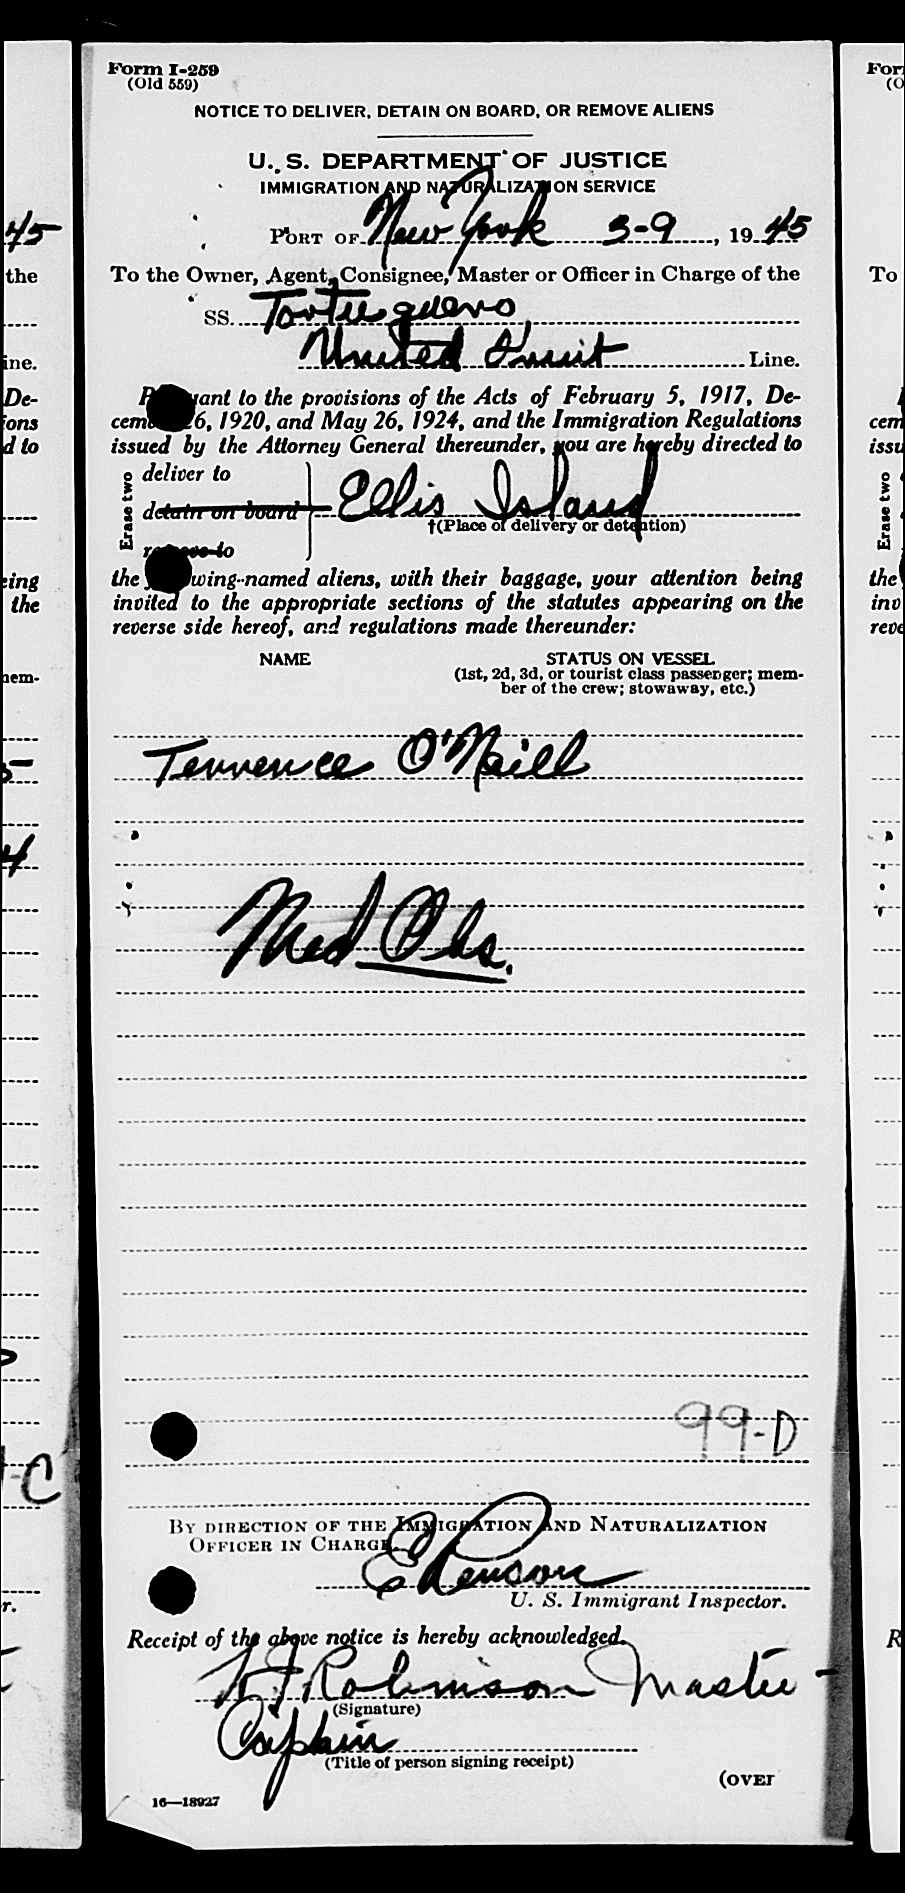 Form I-259
(Old 559)
NOTICE TO DELIVER, DETAIN ON BOARD, OR REMOVE ALIENS
U. S. DEPARTMENT OF JUSTICE
IMMIGRATION AND NATURALIZATION SERVICE
PORT OF New York 3-9, 1945
To the Owner, Agent, Consignee, Master or Officer in Charge of the
SS. Tortuguero
United Fruit Line.
P uant to the provisions of the Acts of February 5, 1917, De-
cem 6, 1920, and May 26, 1924, and the Immigration Regulations
issued by the Attorney General thereunder, you are hereby directed to
Erase two
deliver to
detain on board Ellis Island
†(Place of delivery or detention)
remove to
the wing-named aliens, with their baggage, your attention being
invited to the appropriate sections of the statutes appearing on the
reverse side hereof, and regulations made thereunder:
NAME STATUS ON VESSEL
(1st, 2d, 3d, or tourist class passenger; mem-
ber of the crew; stowaway, etc.)
Terrence O'Neill
Med Obs.
99-D
BY DIRECTION OF THE IMMIGRATION AND NATURALIZATION
OFFICER IN CHARGE.
U. S. Immigrant Inspector.
Receipt of the above notice is hereby acknowledged.
Robinson Master -
(Signature)
Captain
(Title of person signing receipt)
(OVER
16—18927